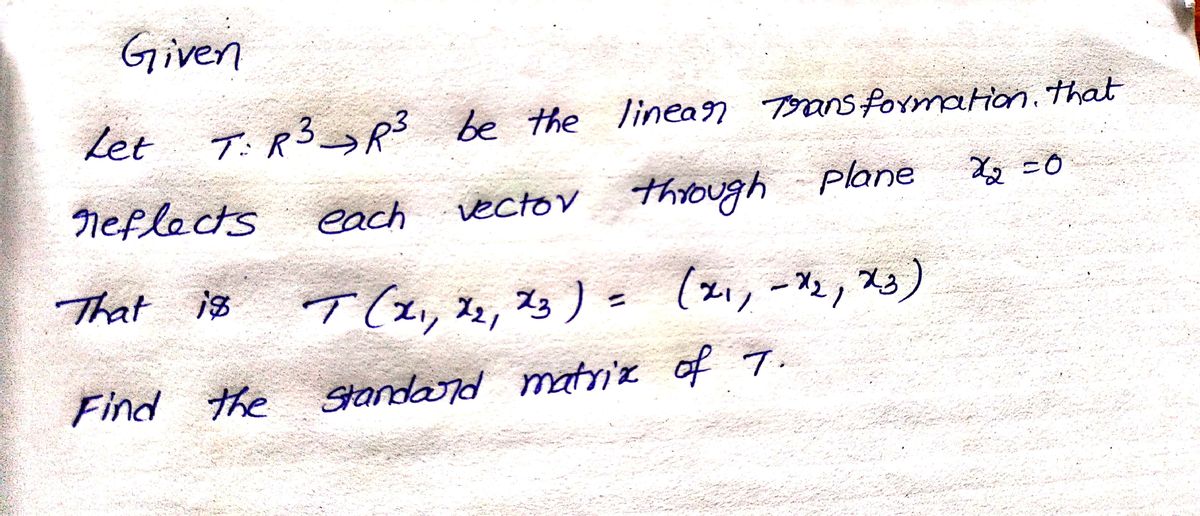 Given
Let T: R³→R³ be the linear Transformation. that
reflects each vector through plane x₂ =0
That is T (x₁, x₂, x₃) = (x₁, -x₂, x₃)
Find the standard matrix of T.